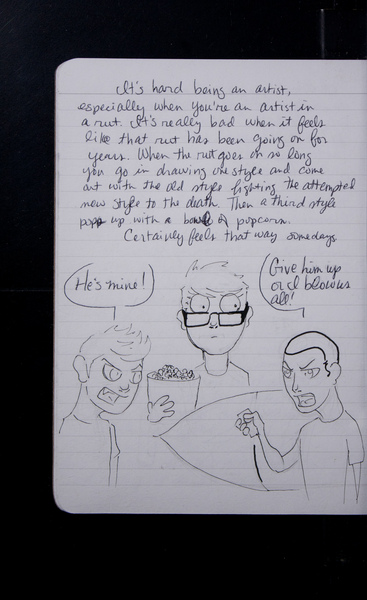 It's hard being an artist,
especially when you're an artist in
a rut. It's really bad when it feels
like that rut has been going on for
years. When the rut goes on so long
you go in drawing one style and come
out with the old style fighting the attempted
new style to the death. Then a third style
pops up with a bowl of popcorn.
Certainly feels that way somedays
He's mine!
Give him up
or I'd blow us
all!